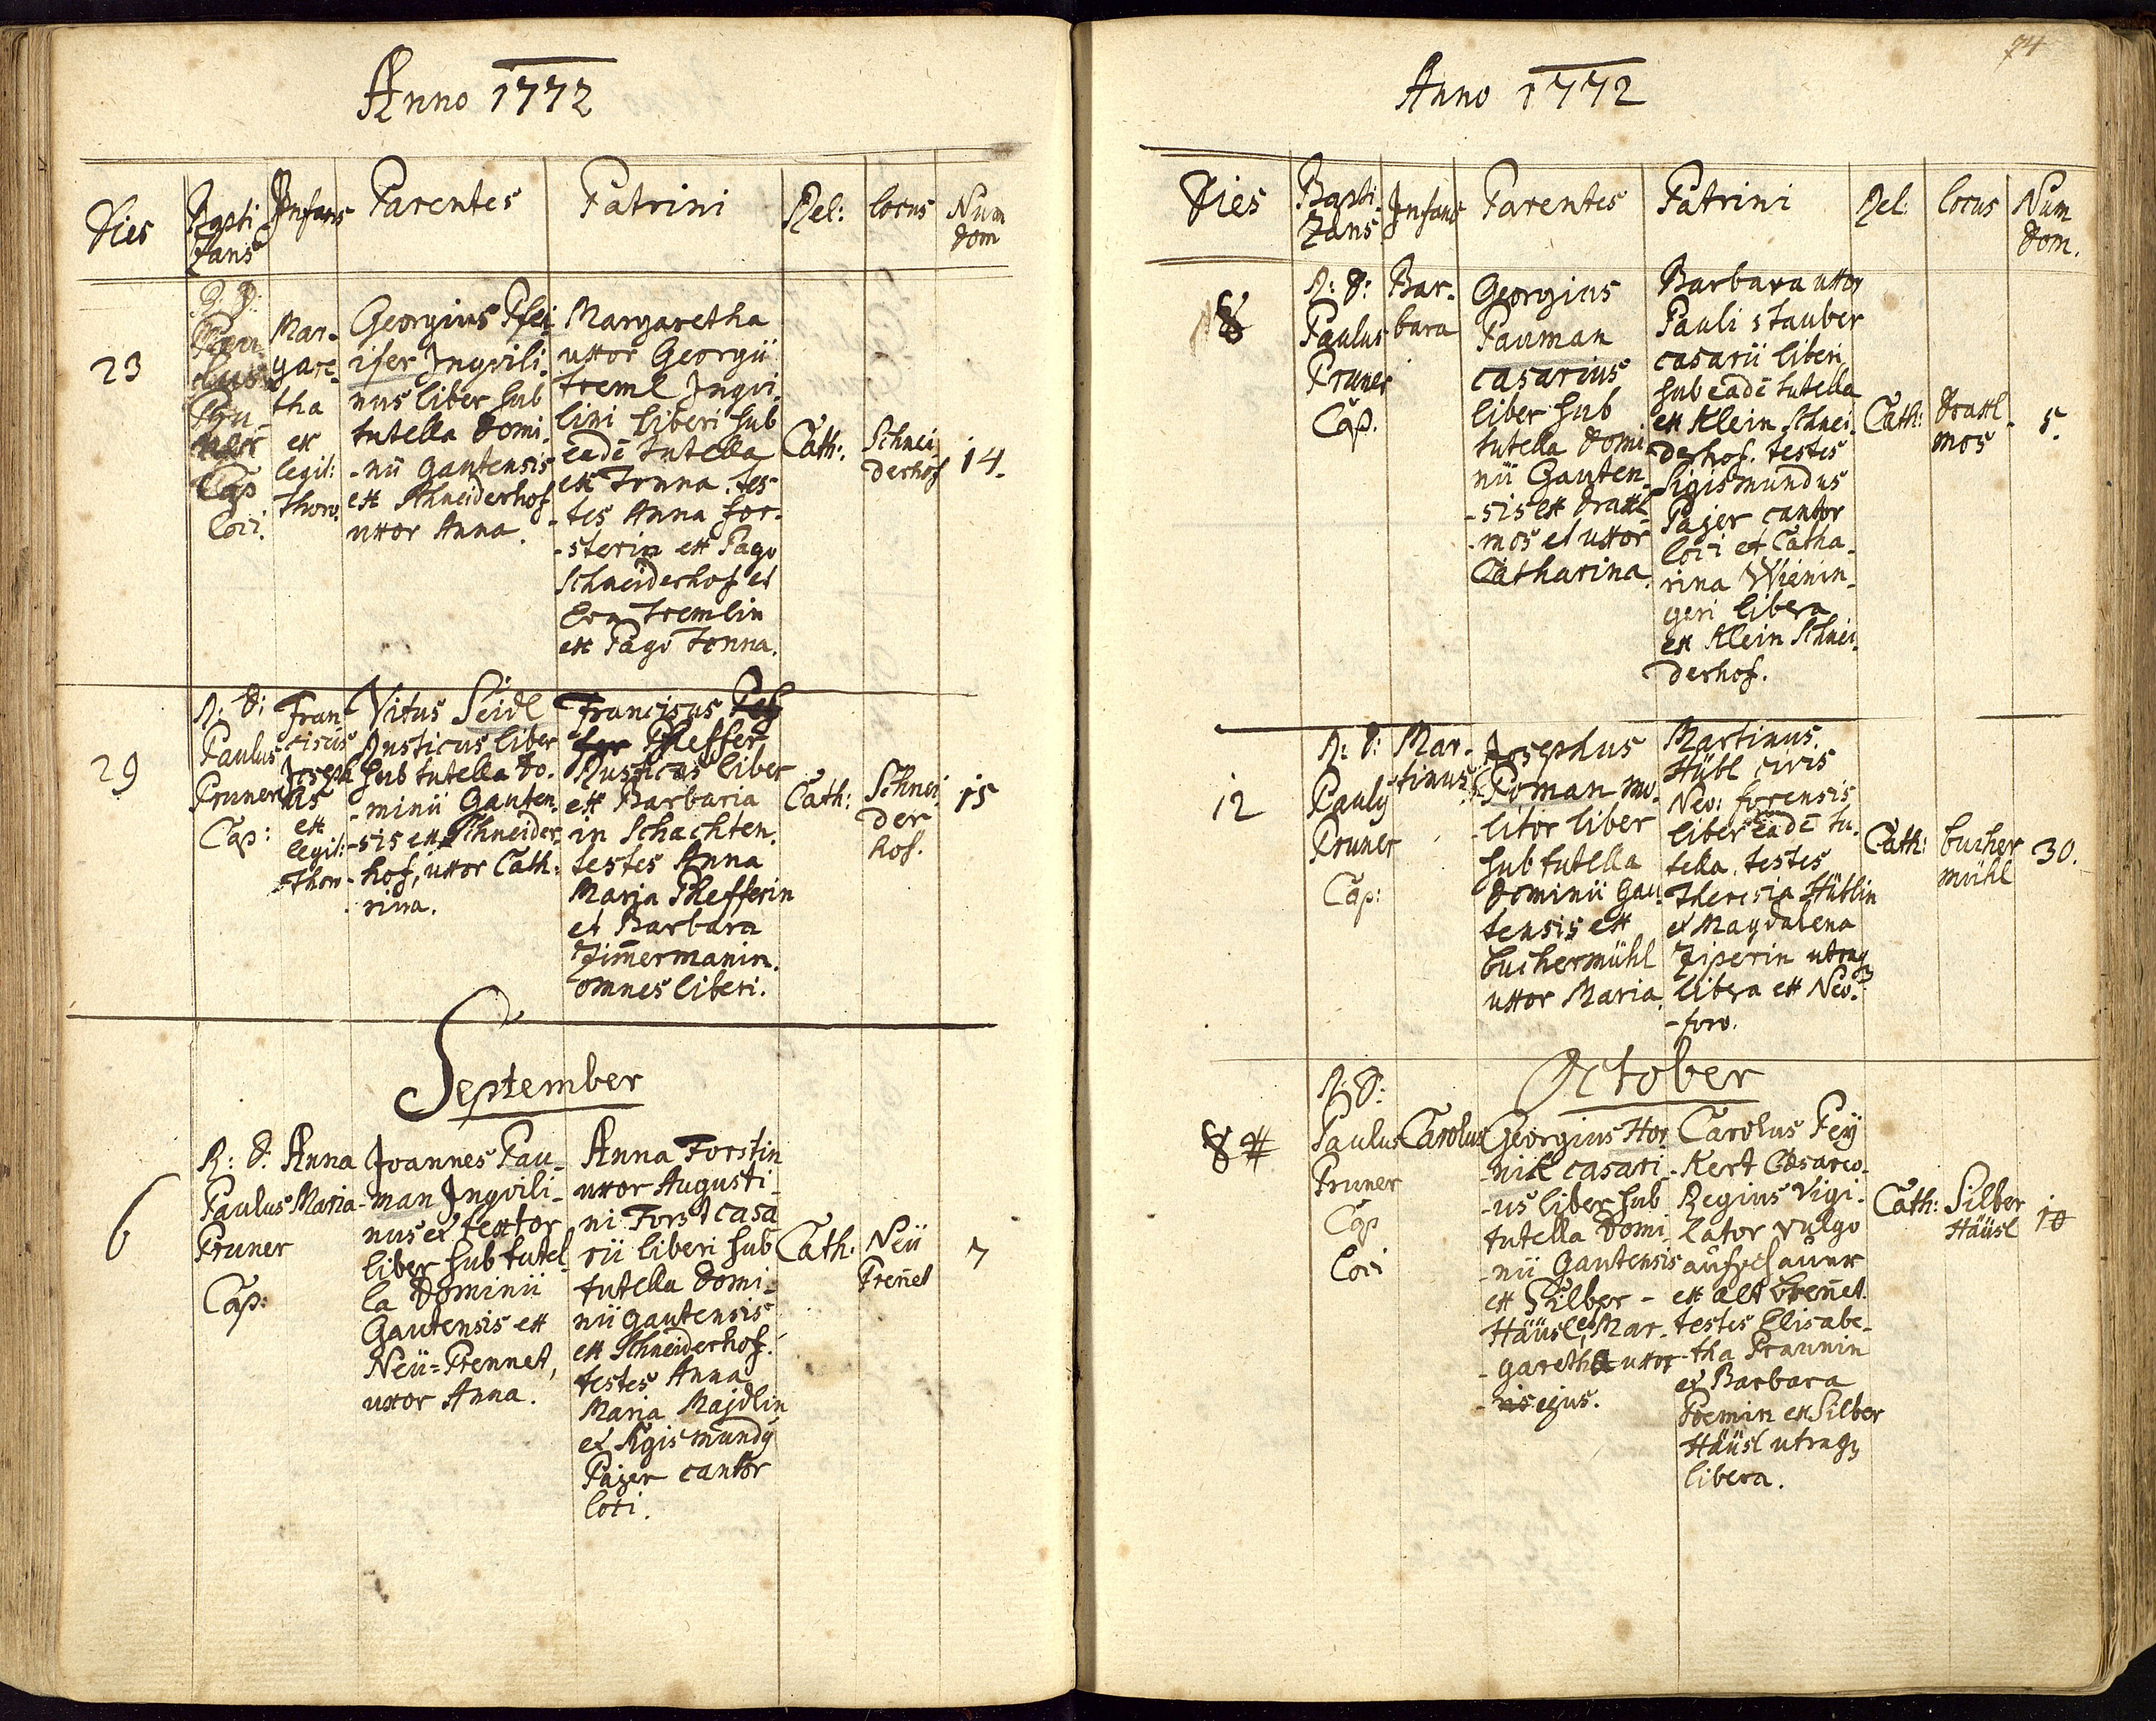 Anno 1772
Dies
Bapti
zans
Infans
Parentes
Patrini
Rel:
locus
Num
dom
23
R: D:
Pau-
lus
Pru-
ner
Cap
loci.
Mar-
gare-
tha
ex
legit:
thoro.
Georgius Pfei-
ifer Inqvili-
nus liber sub
tutella domi-
-nii Gautensis
ex Schneiderhof
uxor Anna.
Margaretha
uxor Georgii
Treml Inqvi-
lini liberi sub
eadē tutella
ex Tonna. tes-
-tes Anna for-
-sterin ex Pago
Schneiderhof et
Eva Tremlin
ex Pago Tonna.
Cath:
Schnei
derhof
14.
29
R: D:
Paulus
Pruner
Cap:
Fran-
ciscus
Joseph
us
ex
legit:
Thor-
Vitus Seidl
Rusticus liber
sub tutella do-
-minii Gauten-
-sis ex Schneider-
hof, uxor Cath:
rina.
Franciscus
Pfeffer
Rusticus liber
ex Barbaria
in Schachten.
testes Anna
Maria Pfefferin
et Barbara
Zim̄ermanin.
omnes liberi.
Cath:
Schnei
der
hof.
15
September
6
R: D.
Paulus
Pruner
Cap:
Anna
Maria
Joannes Pau-
-man Inqvili-
nus et textor
liber sub tutel-
la Dominii
Gautensis ex
Neü=Prennet,
uxor Anna.
Anna Forstin
uxor Augusti-
ni Forst casa
rii liberi sub
tutella domi-
nii gautensis
ex Schneiderhof.
testes Anna
Maria Majdlin
et Sigismundÿ
Pajer cantor
loci.
Cath:
Neü
Pren̄et
7
74
Anno 1772
Dies
Bapti-
zans
Infans
Parentes
Patrini
Rel:
locus
Num
dom.
8
R: D:
Paulus
Pruner
Cap.
Bar-
bara
Georgius
Pauman
casarius
liber sub
tutella domi
nii Gauten-
-sis ex draxl-
-mos et uxor
Catharina.
Barbara uxor
Pauli Stauber
casarii liberi
sub eadē tutella
ex Klein Schnei-
derhof. testes
Sigismundus
Pajer cantor
loci et Catha-
rina Wienin-
geri libera
ex Klein Schnei-
derhof.
Cath:
draxl-
mos
5.
12
R: D:
Paulÿ
Pruner
Cap:
Mar-
tinus
Josephus
Poman mo-
-litor liber
sub tutella
dominii Gau-
tensis ex
buchermühl
uxor Maria.
Martinus
Hübl civis
Neo: forensis
liber eadē tu-
tella. testes
Theresia Hüblin
et Magdalena
Ziperin utraq
libera ex Neo:
-foro.
Cath:
bucher
mühl
30.
October
8
R: D:
Paulus
Pruner
Cap
loci
Carolus
Georgius Hor
-nik casari-
-us liber sub
tutella Domi-
-nii Gautensis
ex Silber-
Häüsl, et Mar-
-garetha uxor
ejus.
Carolus Peÿ
-kert Cæsareo-
Regius Vigi-
lator vulgo
aufschauer
ex alt bren̄et.
testes Elisabe-
-tha Praunin
et Barbara
Poemin ex Silber
Häüsl utraqȝ
libera.
Cath:
Silber
Häüsl
10